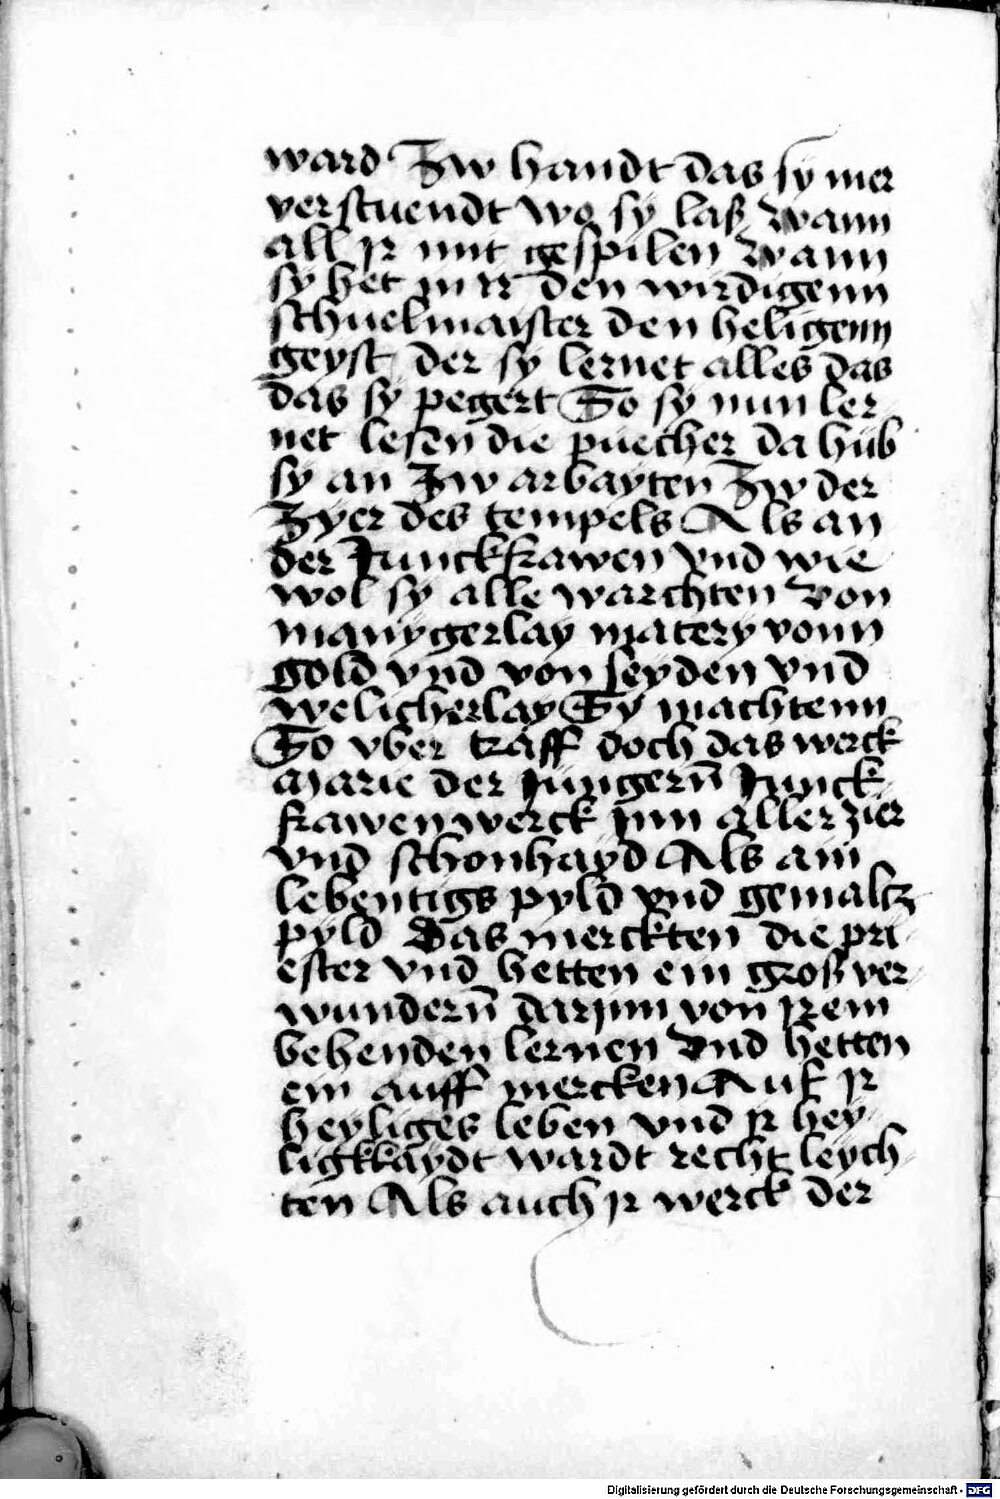 ward Zw handt das sy mer
verstuendt wo sy laß wann
all jr mit gespilen wann
sy het in ir den wirdigenn
schuelmaister den heligenn
geyst der sy lernet alles das
das sy pegert So sy nun ler-
net lesen die puecher da hüb
sy an Zw arbayten Zw der
Zyer des tempels Als an
der Junckfrawen vnd wie
wol sy alle warchten von
manygerlay matery vonn
gold vnd von seyden vnd
welicherlay Sy machtenn
So vber traff doch das werck
Marie der Jüngern̄ Junck-
frawen werck jnn aller zier
vnd schonhayd Als ain
lebentigs pyld vnd gemaltz
pyld Das merckten die pri-
ester vnd hetten ein groß ver-
wundern̄ darjnn von jrem
behenden lernen vnd hetten
ein auff mercken Auf jr
heyliges leben vnd jr hey-
ligkkaydt wardt recht leych-
ten Als auch jr werck der
Digitalisierung gefördert durch die Deutsche Forschungsgemeinschaft - DFG